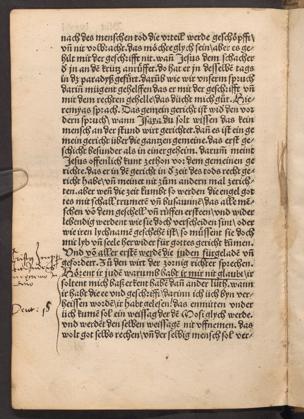 nach des menschen tod die vrteil werde geschöpfft/
vn̄ nit volbracht. das möcht glych sein/aber es ge-
hillt mit der geschrifft nit. wañ Jesus dem schacher
d̕ jn an dē krütz anrüffet. do hat er jn desselbē tags
in dz paradyß gefürt. darūb wie wir vnserm spruch
darin mügent gehelffen das er mit der geschrifft vn̄
mit dem rechten gehelle/das dücht mich gůt. Hie-
remyas sprach. Das gemein gericht ist wid̕ den vor
dern spruch/ wann Jsaya du solt wissen das kein
mensch an der stund wirt gerichtet. dañ es ist ein ge
mein gericht über die gantzen gemeine. das erst ge-
schicht besunder als in einer geheim. darum̄ meint
Jesus offenlich kunt zethon vor dem gemeinen ge
richte. das er in dē gericht in d̕ zeit des tods recht ge-
richt habe/ vn̄ meinet nit zům andern mal zerich-
ten. aber wen̄ die zeit kumbt so werden die engel got
tes mit schall
vn̄ busaunē/ das alle mē-
schen võ dem geschell vn̄ rüffen ersteen/ vnd wider
lebendig werdent wie sie doch verscheiden sin/ oder
wie iren lychname geschehē ist/ so müssent sie doch
mit lyb vn̄ seele her wider für gottes gericht kūmen.
Vnd võ aller erste werdē die juden fürgeladē vn̄
gefordert. Zů den wirt der zornig richter sprechen.
Hözent ir judē warumb habt ir mir nit glaubt/ ir
soltent mich baß erkent habē dan̄ ander lüth. wann
ir habt die ee vnd geschrifft/ darinn ich üch byn ver-
heissen wordē/ ir habt gelesen/ das enmitten vnder
üch kumē sol ein weissag der dē Mosi glych werde.
vnd werdēt den selben weissagē nit vffnemen. das
wolt got selbs rechen/ vn̄ der selbig mensch sol ver-
Deut: 18